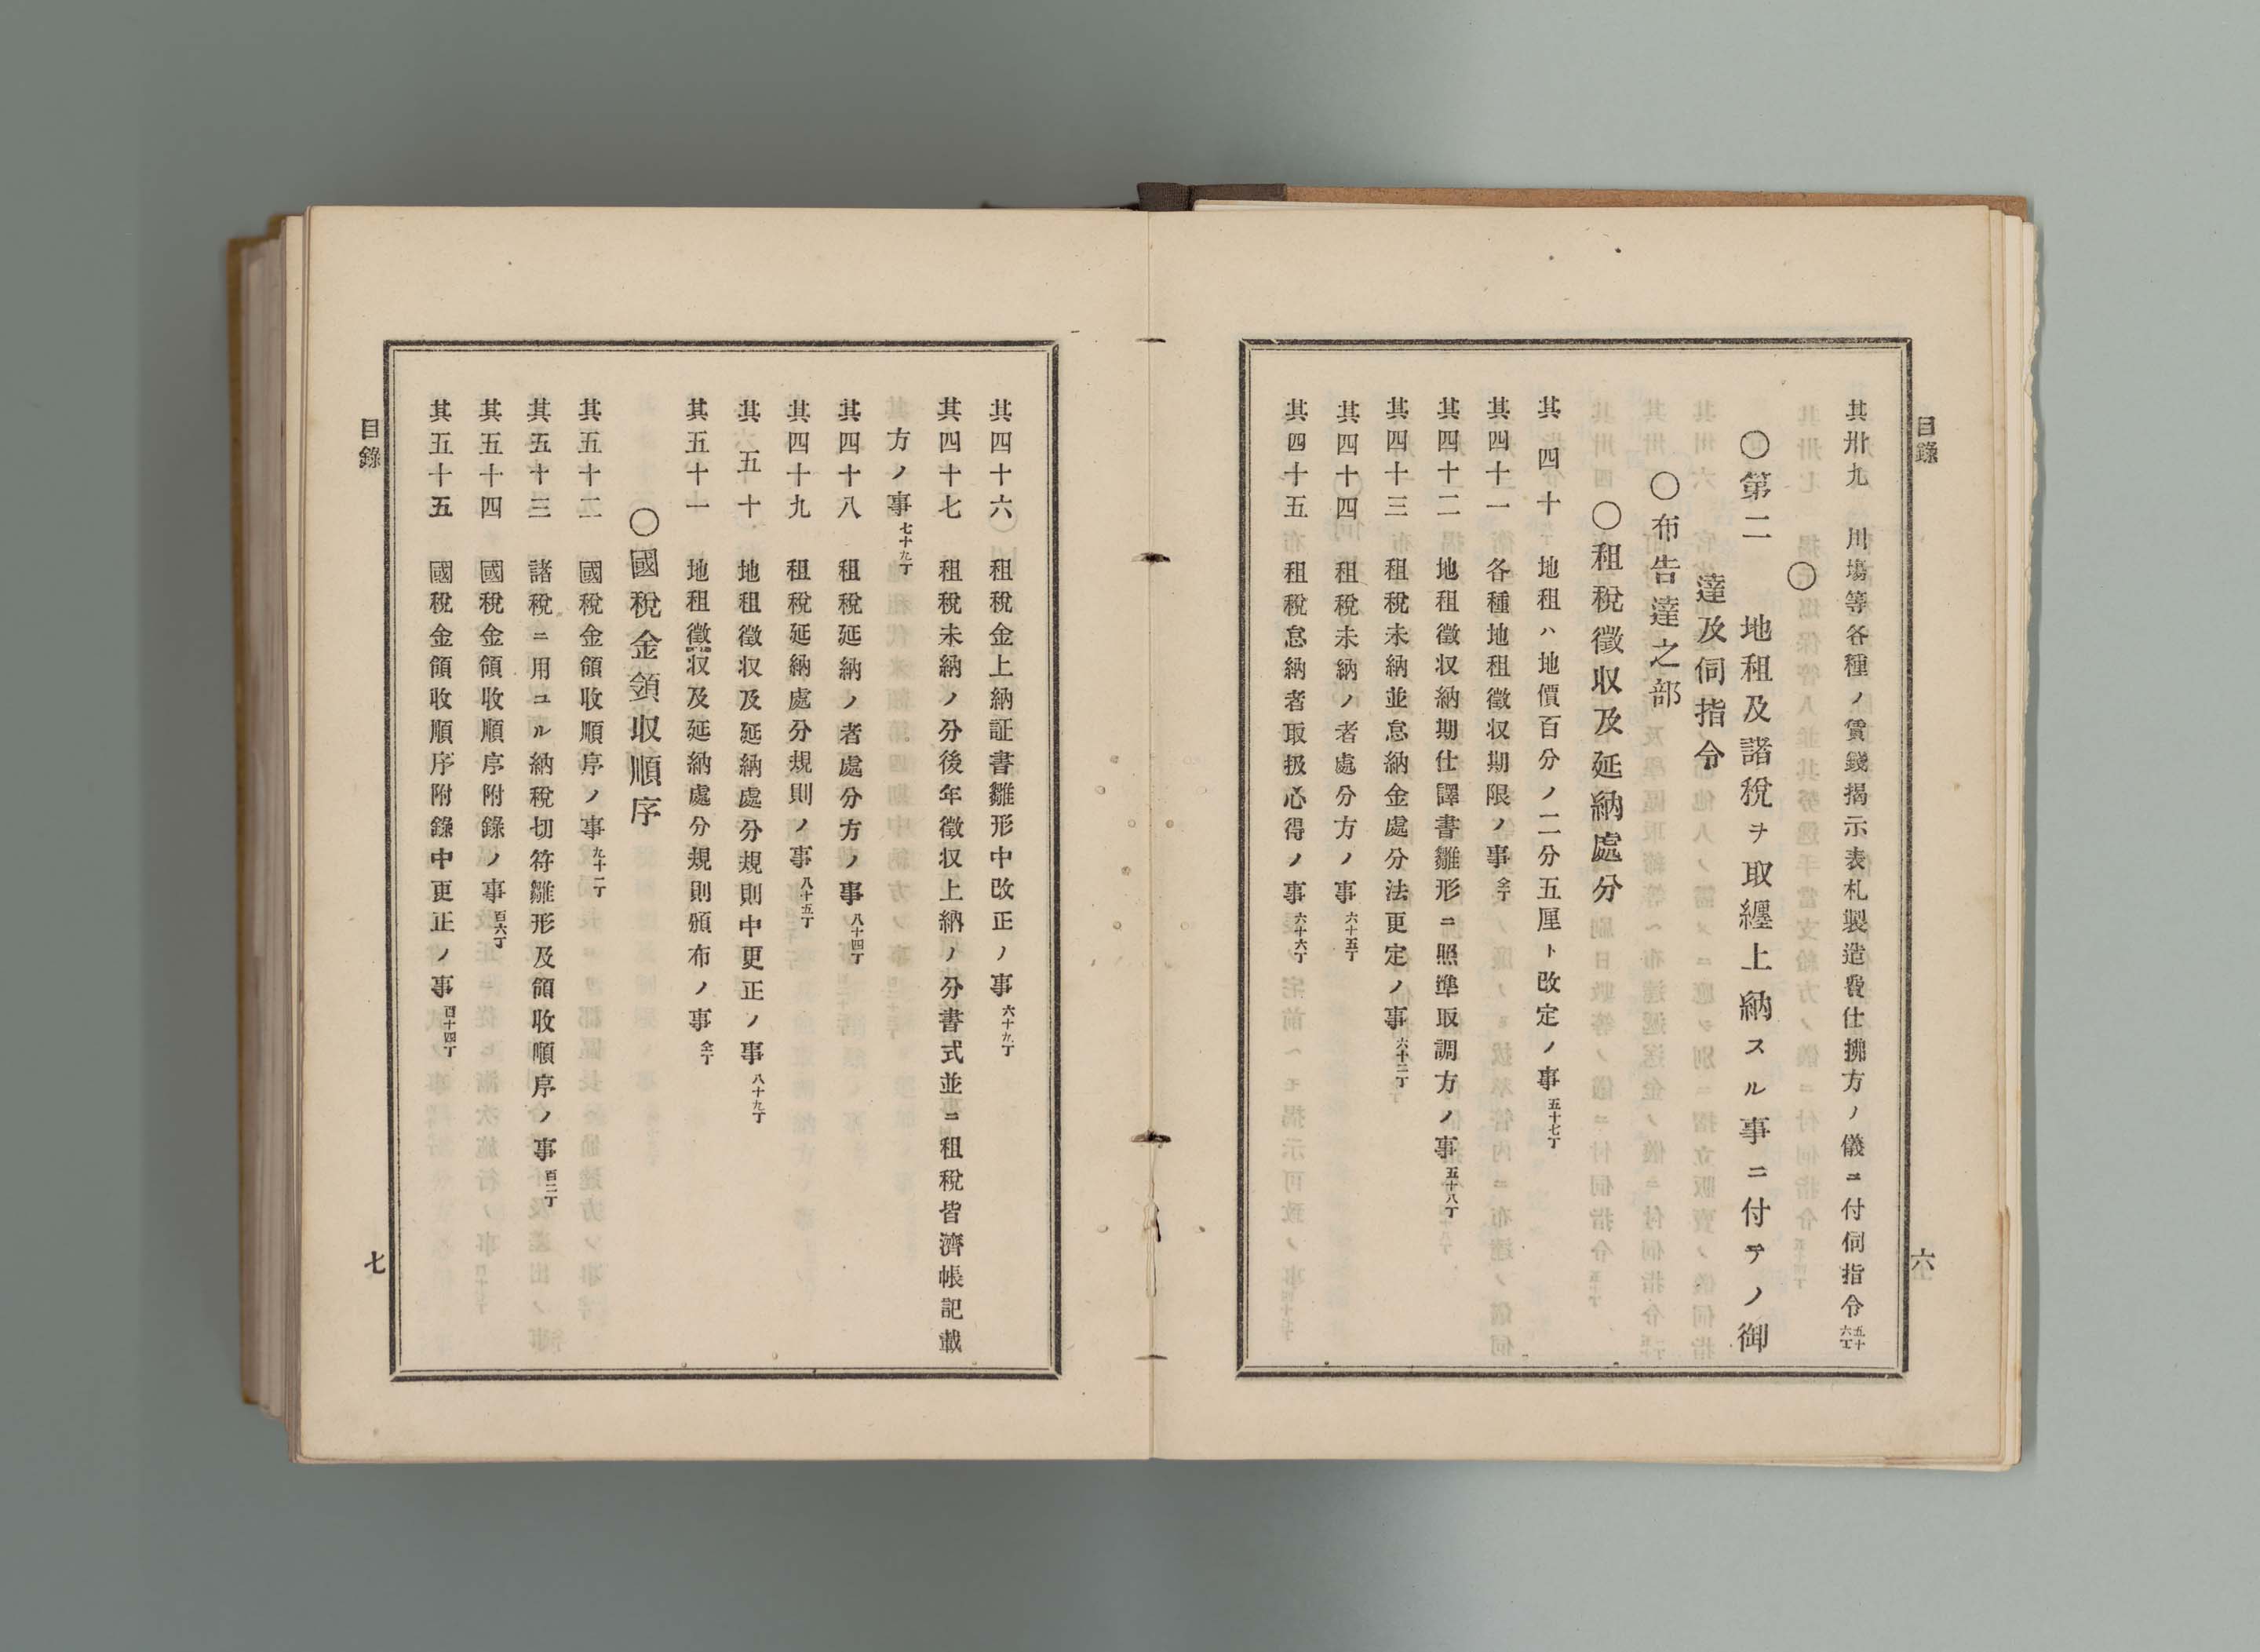 目錄
其卅九 川塲等各種ノ賃錢揭示表札製造費仕拂方ノ儀ニ付伺指令五十六丁
〇
〇第二 地租及諸稅ヲ取纏上納スル事ニ付テノ御
達及伺指令
〇布告達之部
〇租稅徵収及延納處分
其四十 地租ハ地價百分ノ二分五厘ト改定ノ事五十七丁
其四十一 各種地租徵収期限ノ事仝丁
其四十二 地租徵収納期仕譯書雛形ニ照準取調方ノ事五十八丁
其四十三 租稅未納並怠納金處分法更定ノ事六十二丁
其四十四 租稅未納ノ者處分方ノ事六十五丁
其四十五 租稅怠納者取扱心得ノ事六十六丁
六
其四十六 租稅金上納証書雛形中改正ノ事六十九丁
其四十七 租稅未納ノ分後年徵収上納ノ分書式並ニ租稅皆濟帳記載
方ノ事七十九丁
其四十八 租稅延納ノ者處分方ノ事八十四丁
其四十九 租稅延納處分規則ノ事八十五丁
其五十 地租徵収及延納處分規則中更正ノ事八十九丁
其五十一 地租徵収及延納處分規則頒布ノ事仝丁
〇國稅金領収順序
其五十二 國稅金領收順序ノ事九十二丁
其五十三 諸稅ニ用ユル納稅切符雛形及領收順序ノ事百二丁
其五十四 國稅金領收順序附錄ノ事百六丁
其五十五 國稅金領收順序附錄中更正ノ事百十四丁
目錄
七